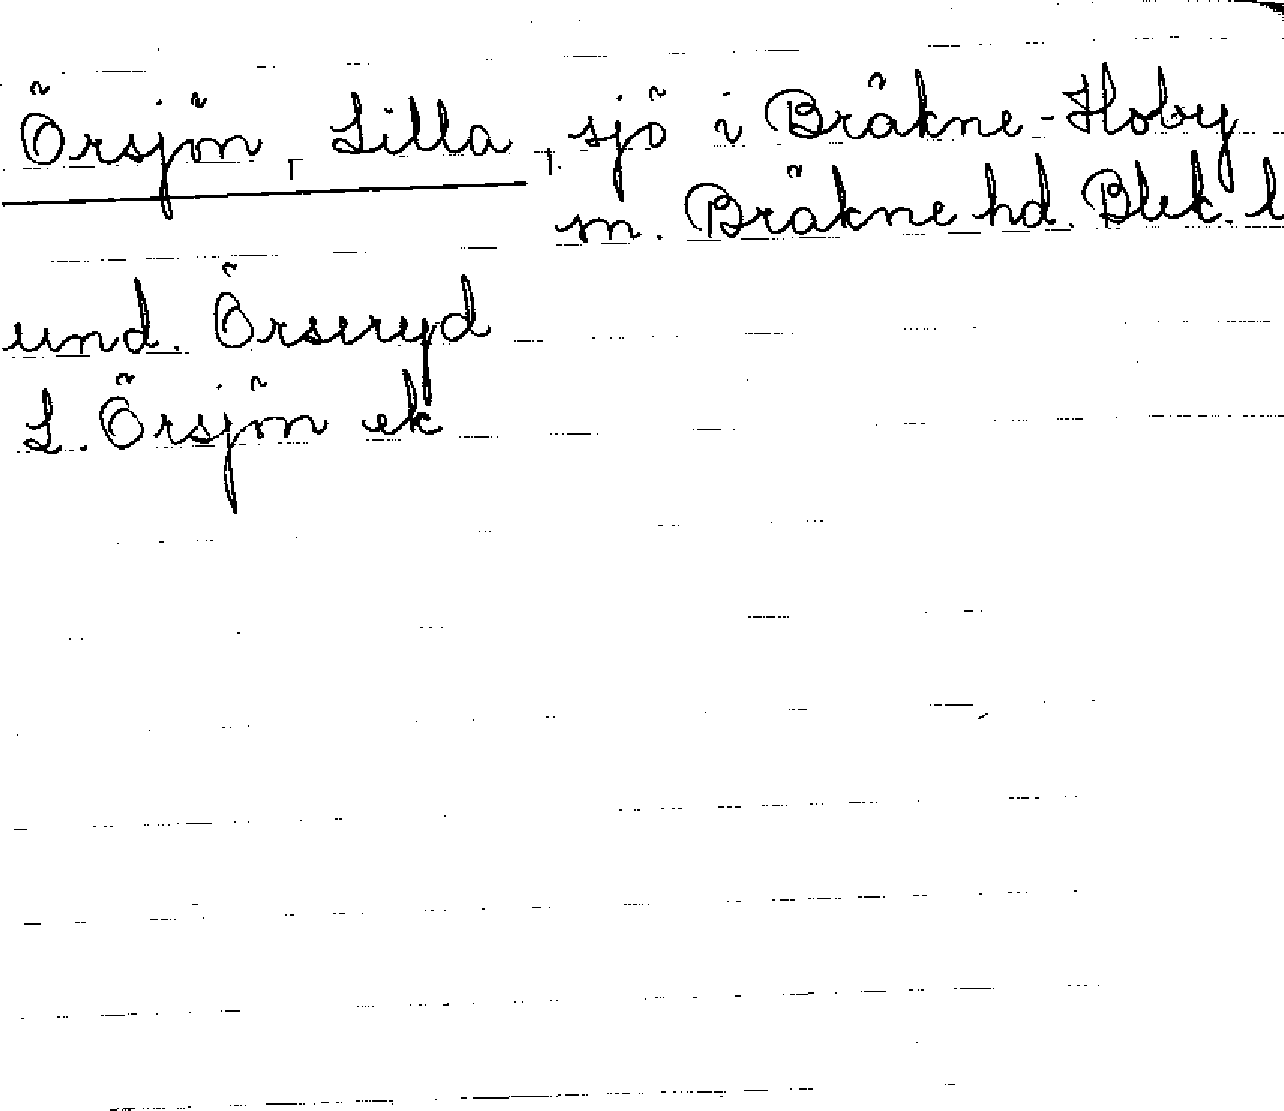 Örsjön, Lilla, sjö i Bräkne-Hoby
sn. Bräkne hd. Blek. l
und. Örseryd
L. Örsjön ek